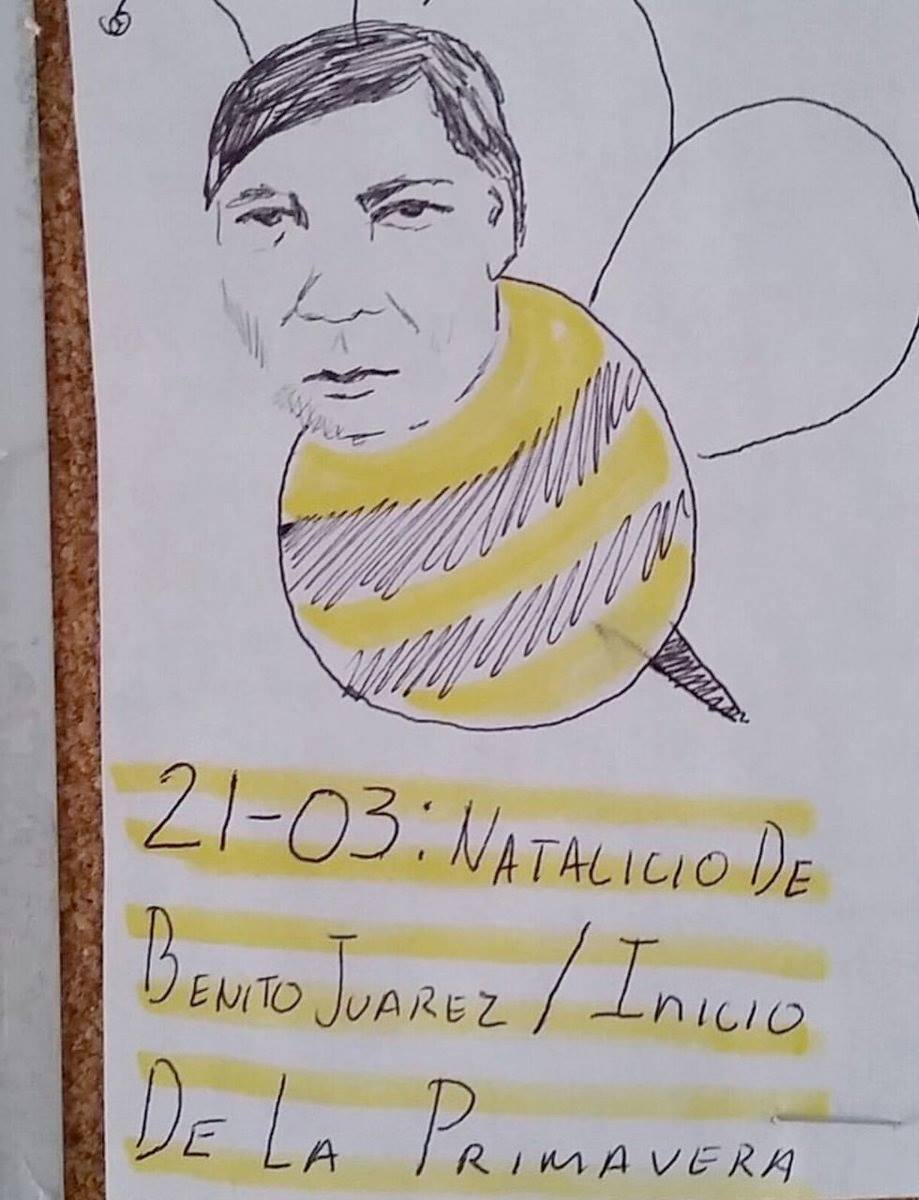 21-03: NATALICIO DE
BENITO JUAREZ / INICIO
DE LA PRIMAVERA